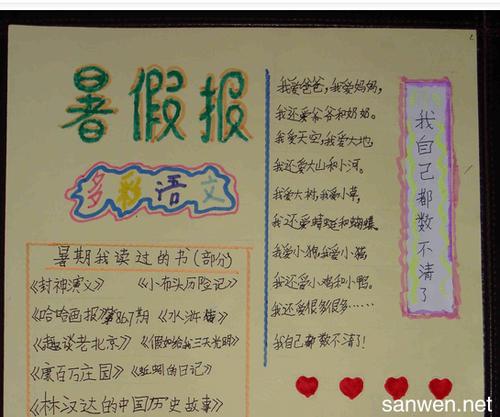 暑假报
多彩语文
暑期我读过的书(部分)
《封神演义》 《小布头历险记》
《哈哈画报》第867期 《水浒传》
《趣谈老北京》 《假如给我三天光明》
《康百万庄园》 《蚯蚓的日记》
《林汉达的中国历史故事》
我爱爸爸,我爱妈妈,
我还爱爷爷和奶奶。
我爱天空,我爱大地,
我还爱大山和小河。
我爱大树,我爱小草,
我还爱蜻蜓和蝴蝶。
我爱小狗,我爱小猫
我还爱小鸡和小鸭。
我还爱很多很多……
我自己都数不清了!
我自己都数不清了
sanwen.net